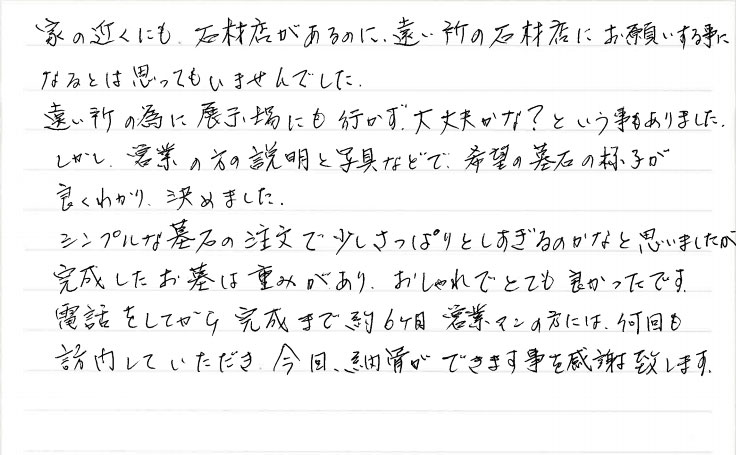 家の近くにも、石材店があるのに、遠い所の石材店にお願いする事に
なるとは思ってもいませんでした。
遠い所の為に展示場にも行かず、大丈夫かな？という事もありました。
しかし、営業の方の説明と写真などで、希望の墓石の様子が
良くわかり、決めました。
シンプルな墓石の注文で少しさっぱりとしすぎるのかなと思いましたが
完成したお墓は重みがあり、おしゃれでとても良かったです。
電話をしてから完成まで約6ヶ月 営業マンの方には、何回も
訪問していただき、今回、納骨ができます事を感謝致します。